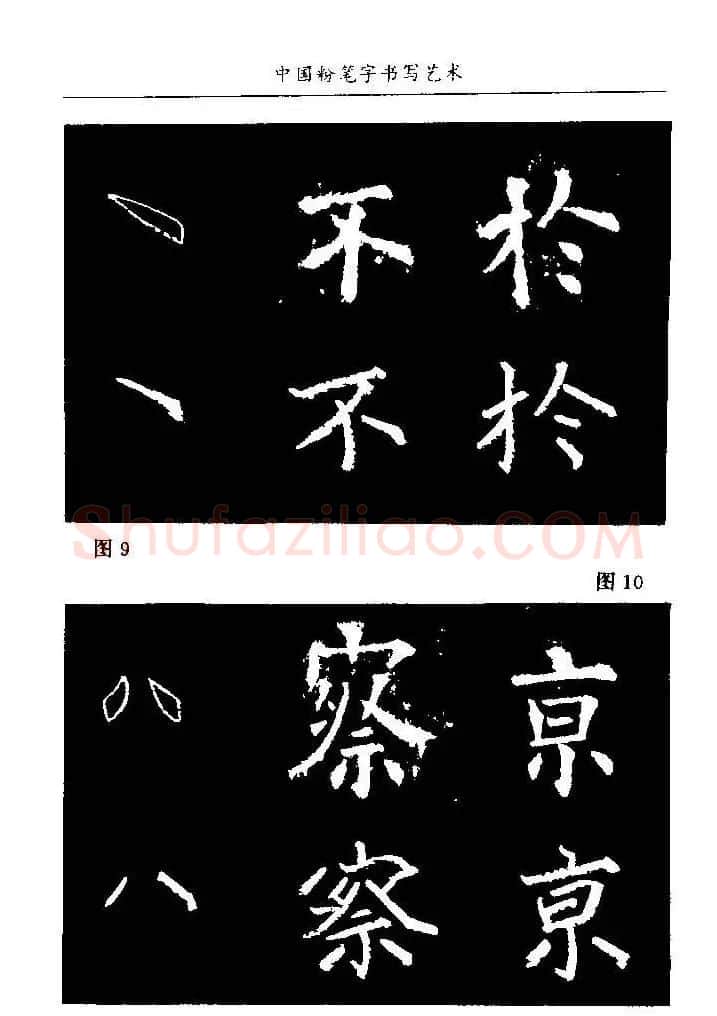 中国粉笔字书写艺术
不 於
不 於
Shufaziliao.COM
图9
图10
察 京
察 京